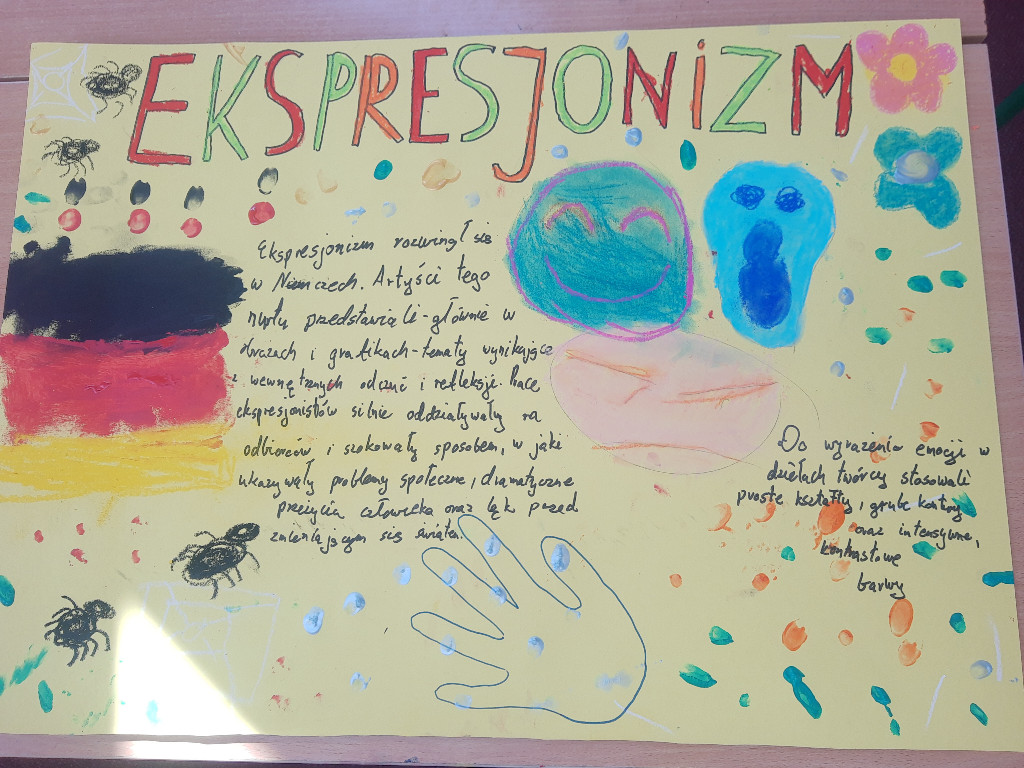 EKSPRESJONIZM
Ekspresjonizm rozwinął się
w Niemczech. Artyści tego
nurtu przedstawiali - głównie w
obrazach i grafikach - tematy wynikające
z wewnętrznych odczuć i refleksji. Prace
ekspresjonistów silnie oddziaływały na
odbiorców i szokowały sposobem, w jaki
ukazywały problemy społeczne, dramatyczne
przeżycia człowieka oraz lęk przed
zmieniającym się światem.
Do wyrażenia emocji w
dziełach twórcy stosowali
proste kształty, grube kontury
oraz intensywne,
kontrastowe
barwy